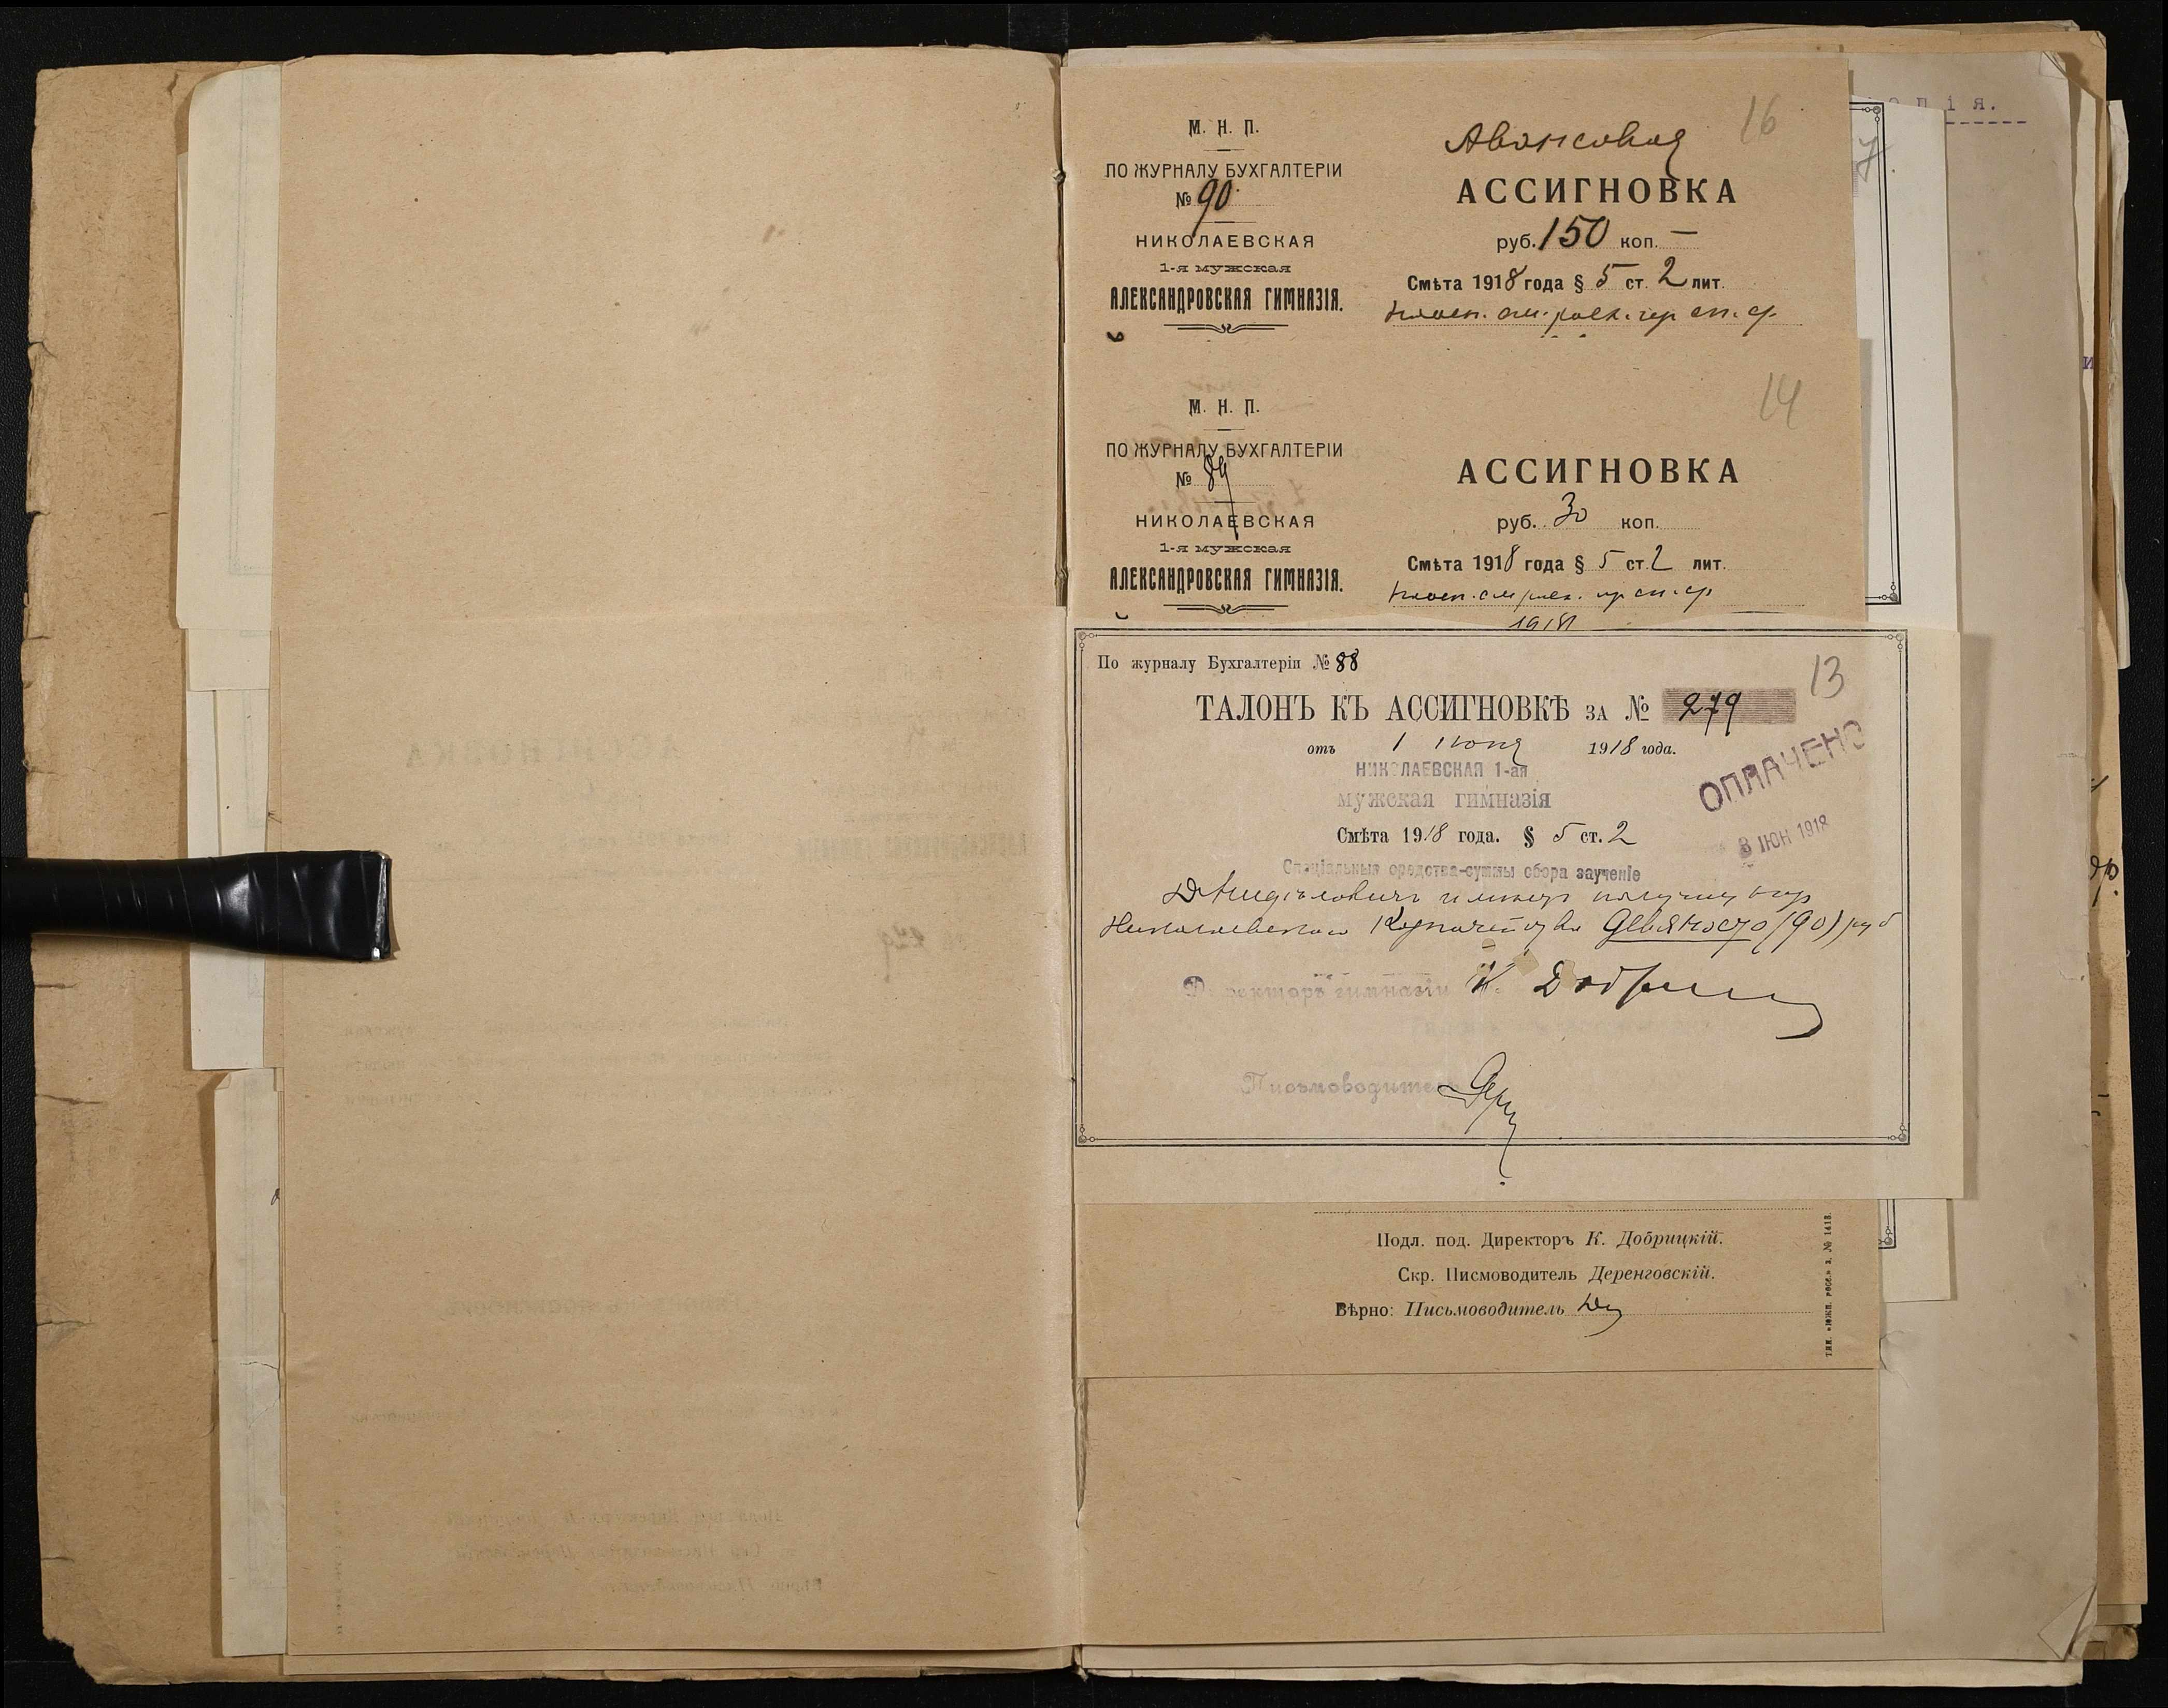 Авансовая
16
М. Н. П.
ПО ЖУРНАЛУ БУХГАЛТЕРІИ
№ 90
НИКОЛАЕВСКАЯ
1-я мужская
АЛЕКСАНДРОВСКАЯ ГИМНАЗІЯ.
АССИГНОВКА
руб. 150 коп. —
Смѣта 1918 года § 5 ст. 2 лит.
14
М. Н. П.
ПО ЖУРНАЛУ БУХГАЛТЕРІИ
№ 89
НИКОЛАЕВСКАЯ
1-я мужская
АЛЕКСАНДРОВСКАЯ ГИМНАЗІЯ.
АССИГНОВКА
руб. 30 коп.
Смѣта 1918 года § 5 ст. 2 лит.
По журналу Бухгалтеріи № 88
13
ТАЛОНЪ КЪ АССИГНОВКѢ ЗА № 279
отъ 1 июня 1918 года.
НИКОЛАЕВСКАЯ 1-ая
мужская гимназія
ОПЛАЧЕНО
3 ІЮН 1918
Смѣта 1918 года. § 5 ст. 2
Спеціальныя средства-суммы сбора заученіе
имеет получить из
Николаевского Казначейства Девяносто (90) руб
Директоръ гимназіи К. Добрицкій
Письмоводитель
Подл. под. Директоръ К. Добрицкій.
Скр. Писмоводитель Деренговскій.
Вѣрно: Письмоводитель
тип. «южн. росс.» з. № 1413.
пія.